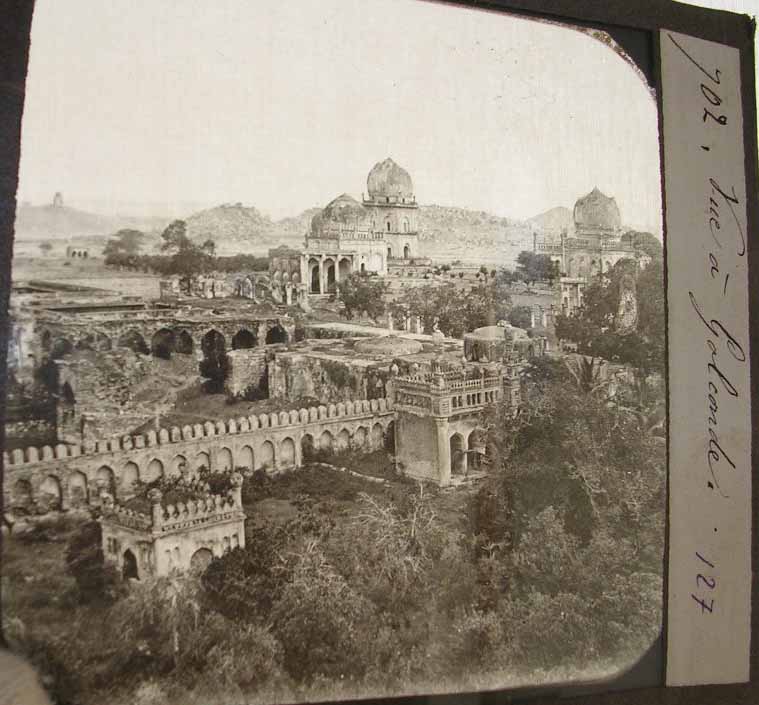 702. Vue à Golconde. 127